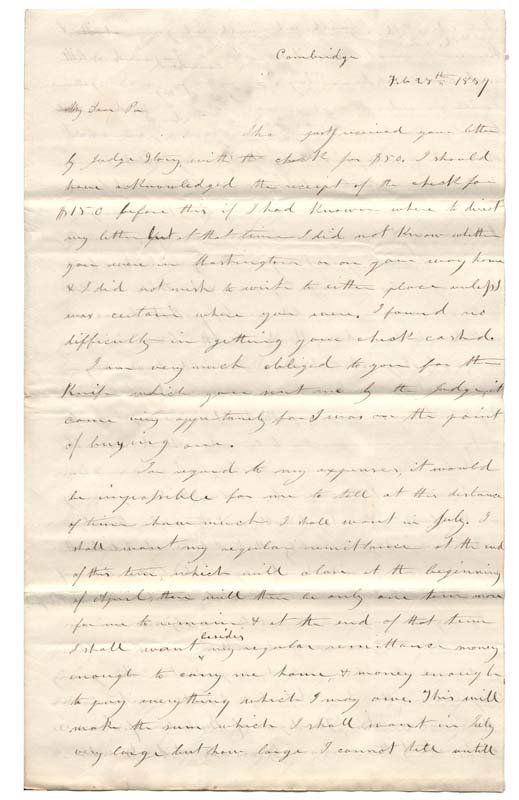 Cambridge
Feb 28th 1837
My Dear Pa
I have just received your letter
by Judge Story, with the check for $50. I should
have acknowledged the receipt of the check for
$150 before this, if I had known where to direct
my letter but at that time I did not know whether
you were in Washington or on your way home
& I did not wish to write to either place unless I
was certain where you were. I found no
difficulty in getting your check cashed.
I am very much obliged to you for the
Knife which you sent me by the Judge, it
came very opportunely for I was on the point
of buying one.
In regard to my expenses, it would
be impossible for me to tell at this distance
of time how much I shall want in July. I
shall want my regular remittance at the end
of this term, which will close at the beginning
of April, there will then be only one term more
for me to remain & at the end of that term
I shall want besides my regular remittance money
enough to carry me home, & money enough
to pay everything which I may owe. This will
make the sum which I shall want in July
very large but how large I cannot tell untill